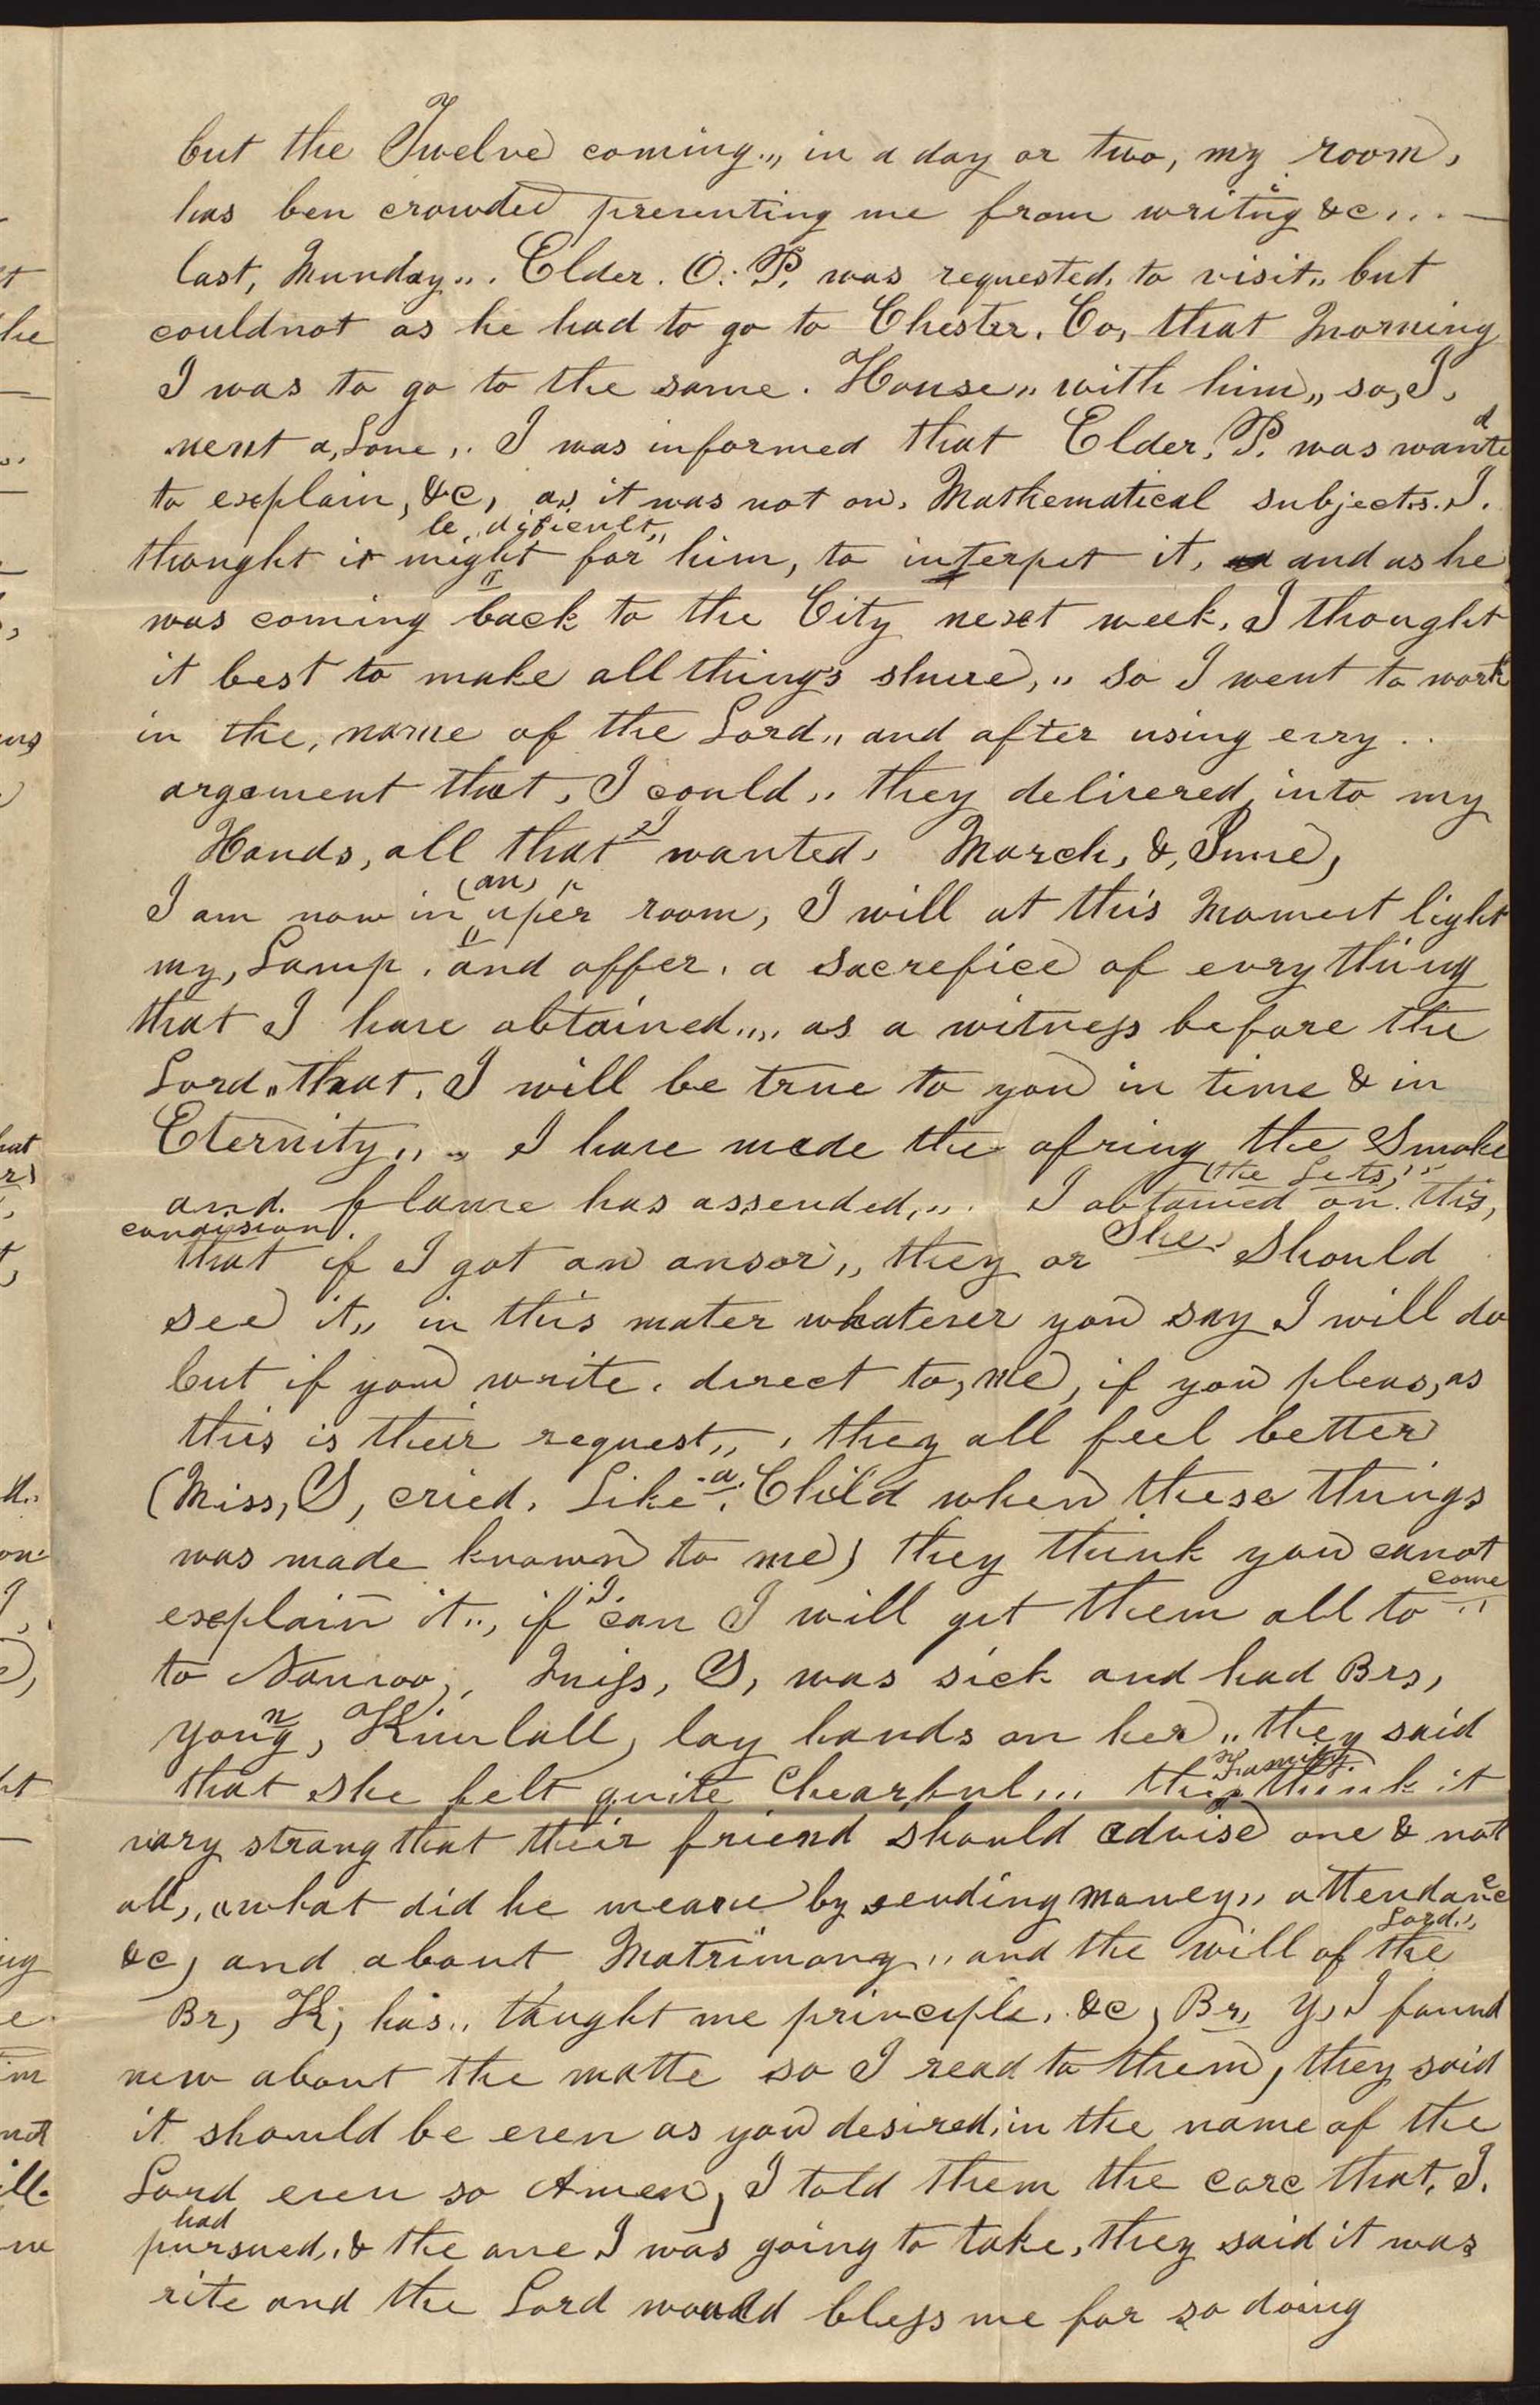 but the Twelve coming,, in a day or two, my room,
has ben crowded presenting me from writing &c,.. —
last, Munday,,. Elder. O. P. was requested, to visit,, but
couldnot as he had to go to Chester. Co, that Morning
I was to go to the same. House,, with him,, so, I,
went a,Lone,. I was informed that Elder, P. was wanted
to explain, &c, as it was not on, Mathematical subjects. I.
be dificult,,
thought it might for him, to interpet it, and as he
was coming back to the City next week, I thought
it best to make all things shure,,, so I went to work
in the, name of the Lord,, and after using evry ..
argument that, I could,, they delivered, into my
Hands, all that I wanted, March, &, June,
(an)
I am now in uper room, I will at this Moment light
my, Lamp, and offer, a sacrefice of evry thing
that I have obtained,,,, as a witness before the
Lord,, that, I will be true to you in time & in
Eternity,,.. I have made the ofring the Smoke
(the Lets,)
and. flame has assended,,,. I obtained on this,
condision.
that if I got an ansor,, they or She. Should
see it,, in this mater whatever you say I will do
but if you write, direct to, me, if you pleas, as
this is their request,,, they all feel better
(Miss, G, cried, Like a Child when these things
was made known to me) they think you canot
explain it,,, if I can I will get them all to come
to Nauvoo,. Miss, G, was sick and had Brs,
Young, Kimball, lay hands on her,, they said
Family.
that she felt quite Chearful... the think it
vary strang that their friend should advise one & not
all,,, what did he meane by sending money,, attendance
&c, and about Matrimony,, and the will of the Lord.,,
Br, K, has,, taught me principle, &c, Br, Y, I found
new about the matte so I read to them, they said
it should be even as you desired, in the name of the
Lord even so Amen, I told them the corc that, I.
had
pursued,. & the one I was going to take, they said it was
rite and the Lord would bless me for so doing